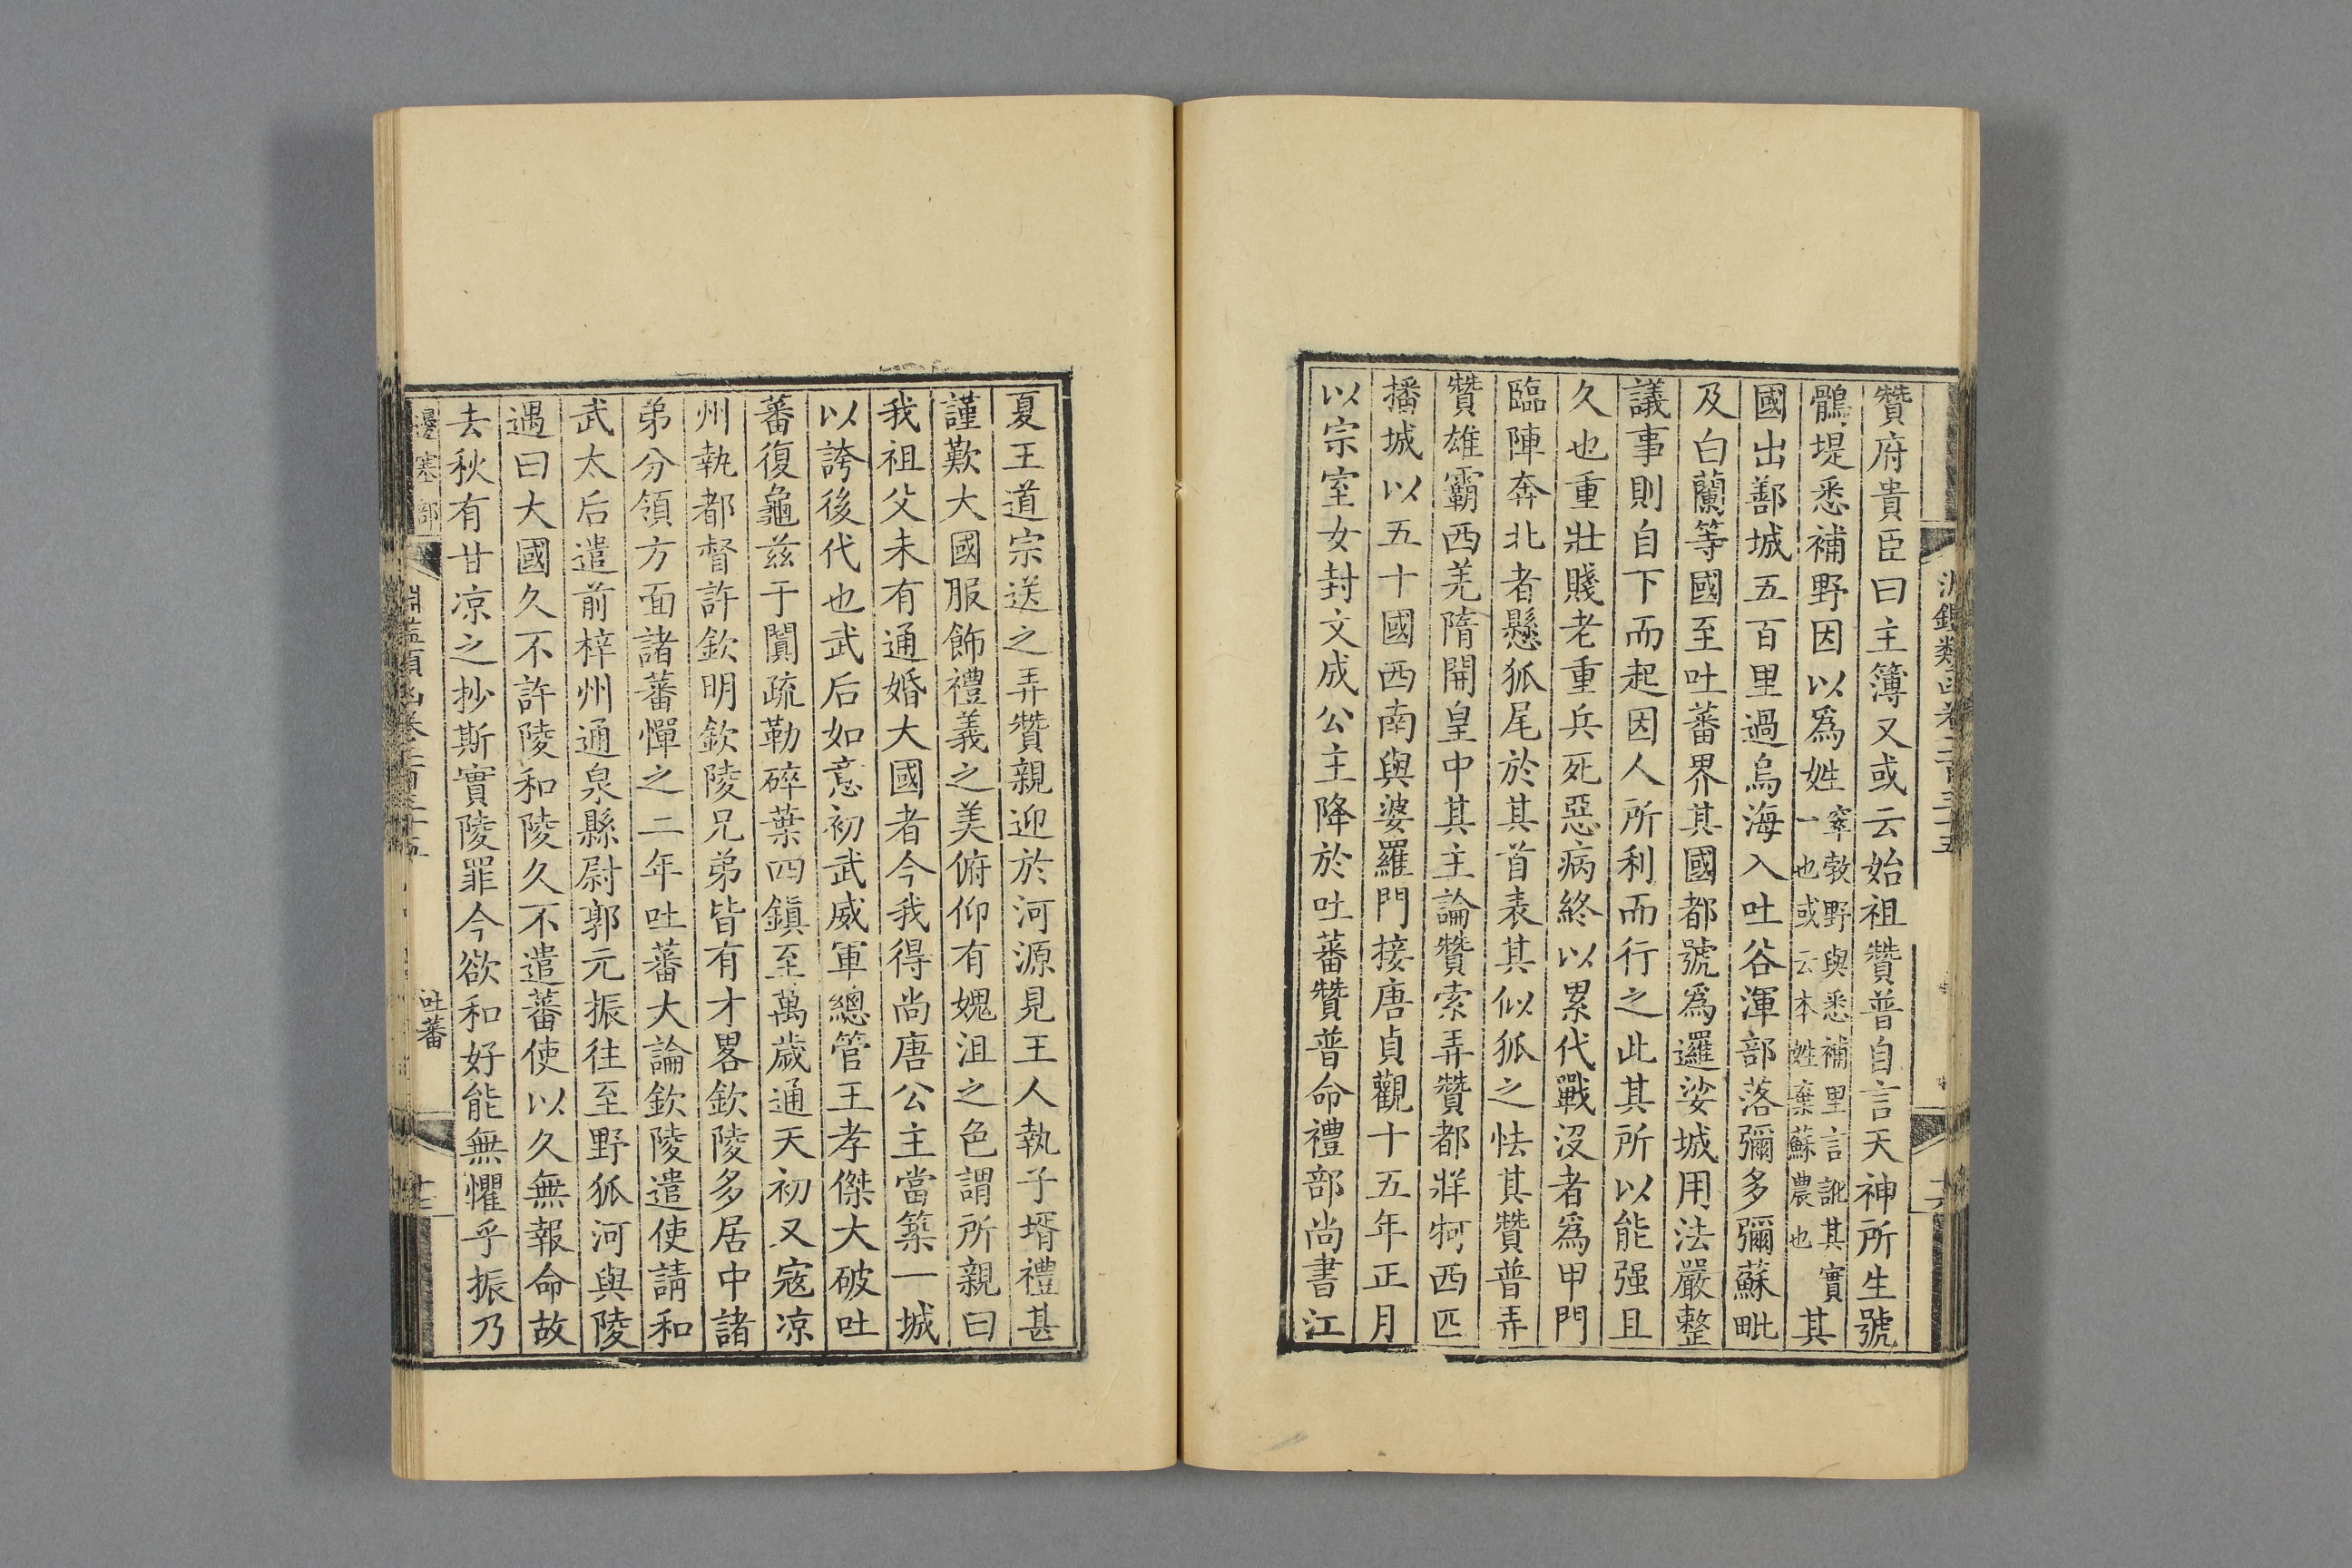 贊府貴臣曰主簿又或云始祖贊普自言天神所生號
鶻堤悉補野因以爲姓窣㪍野與悉補里言訛其實一也或云本姓棄蘇農也其
國出鄯城五百里過烏海入吐谷渾部落彌多彌蘇毗
及白蘭等國至吐蕃界其國都號爲邏娑城用法嚴整
議事則自下而起因人所利而行之此其所以能强且
久也重壯賤老重兵死惡病終以累代戰沒者爲甲門
臨陣奔北者懸狐尾於其首表其似狐之怯其贊普弄
贊雄霸西羌隋開皇中其主論贊索弄贊都牂牁西匹
播城以五十國西南與婆羅門接唐貞觀十五年正月
以宗室女封文成公主降於吐蕃贊普命禮部尚書江
夏王道宗送之弄贊親迎於河源見王人執子壻禮甚
謹歎大國服飾禮義之美俯仰有媿沮之色謂所親曰
我祖父未有通婚大國者今我得尚唐公主當築一城
以誇後代也武后如意初武威軍總管王孝傑大破吐
蕃復龜兹于闐疏勒碎葉四鎭至萬歲通天初又寇凉
州執都督許欽明欽陵兄弟皆有才畧欽陵多居中諸
弟分領方面諸蕃憚之二年吐蕃大論欽陵遣使請和
武太后遣前梓州通泉縣尉郭元振往至野狐河與陵
遇曰大國久不許陵和陵久不遣蕃使以久無報命故
去秋有甘凉之抄斯實陵罪今欲和好能無懼乎振乃
邊塞部
吐蕃